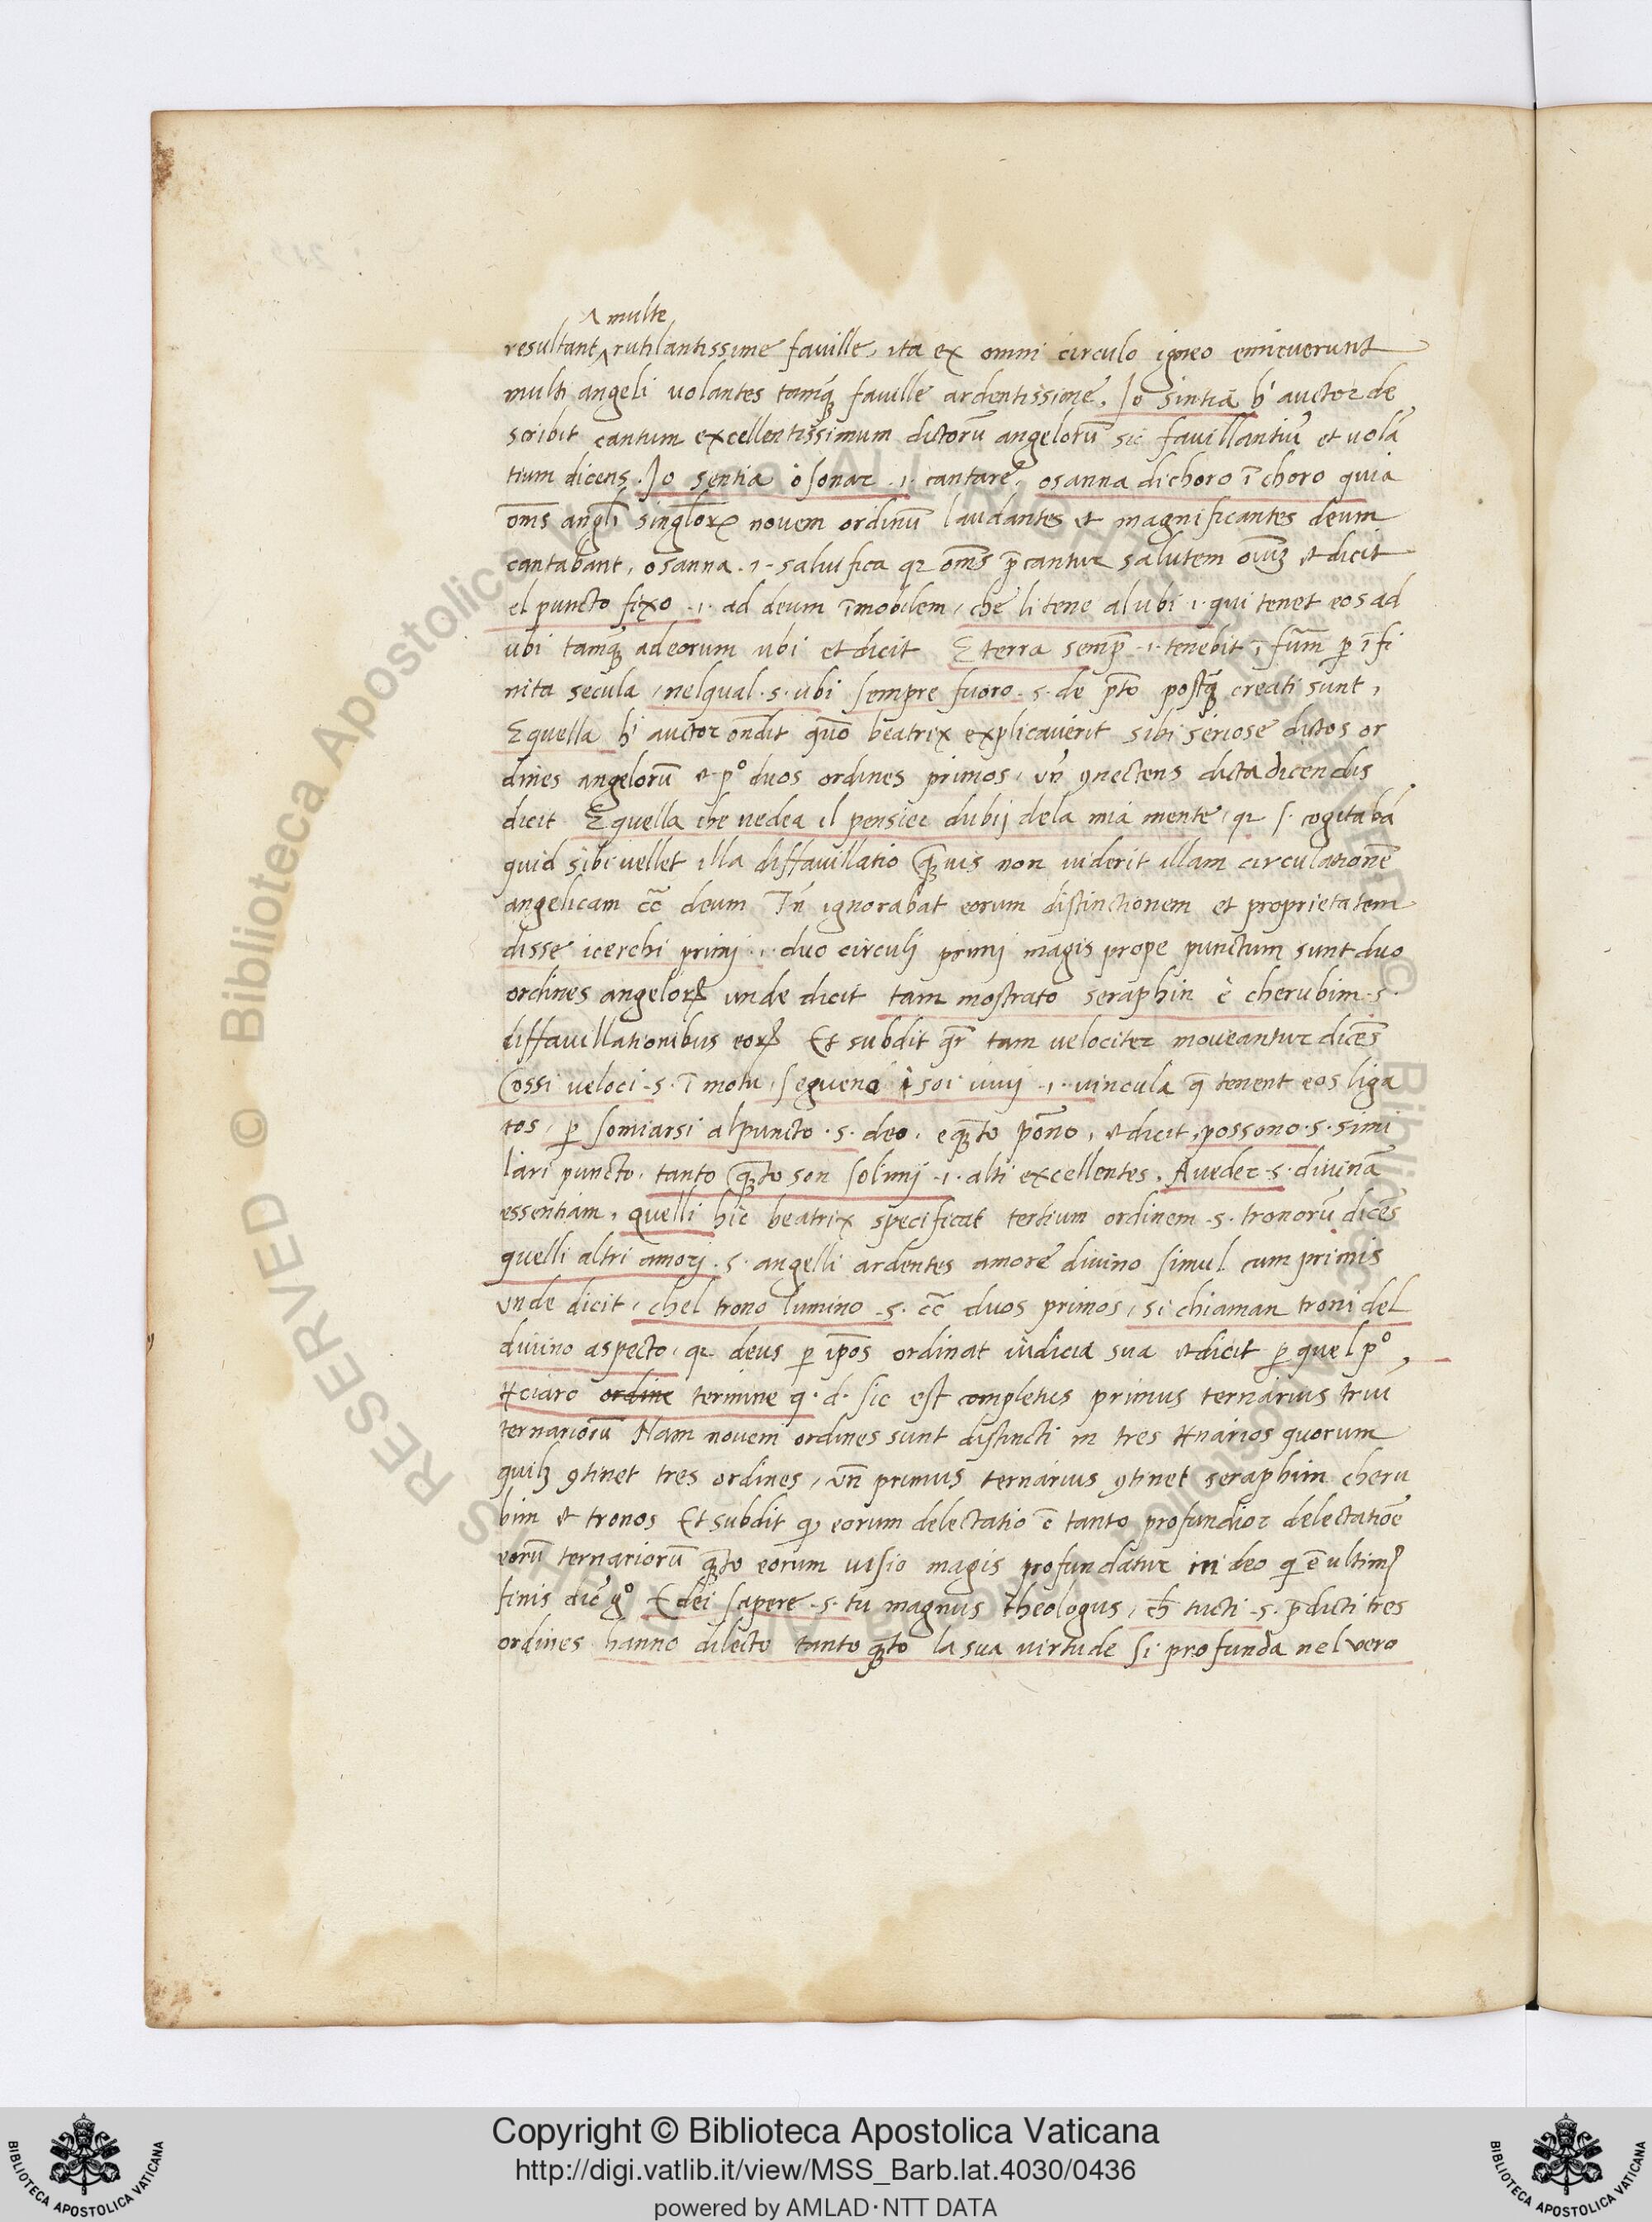 ^ multe
resultant ^ rutilantissime faville, ita ex omni circulo igneo emicuerunt
multi angeli volantes tamq̃ faville ardentissime. Jo sintia h̓ auctor de
scribit cantum excellentissimum dictorũ angelorũ sic favillantiũ et volã
tium dicens. Jo sentia osonar .i. cantare. osanna dichoro ĩ choro quia
om̃s angl̃i singlorꝝ novem ordinũ laudantes et magnificantes deum
cantabant, osanna .i. salvifica qr om̃s p̃cantur salutem oĩuz et dicit
el puncto fixo .i. ad deum ĩmobilem, che li tene al ubi .i. qui tenet eos ad
ubi tamq̃ ad eorum ubi et dicit E terra semp̃ .i. tenebit ĩ fũm ꝑ ĩfi
nita secula, nel qual .s. ubi sempre fuoro .s. de p̃to postq̃ creati sunt,
E quella h̓ auctor oñdit quõ beatrix explicaverit sibi seriose dictos or
dines angelorũ et p° duos ordines primos, uñ ꝯnectens dicta dicendis
dicit E quella che vedea il pensier dubij dela mia mente, qr s. cogitabã
quid sibi vellet illa diffavillatio q̃vis non viderit illam circulationẽ
angelicam cc̃ deum Tñ ignorabat eorum distinctionem et proprietatem
disse icerchi primj .i. duo circulj primj magis prope punctum sunt duo
ordines angelorꝝ unde dicit tam mostrato seraphin è cherubim .s.
diffavillationibus eorꝝ Et subdit qr̃ tam velociter moveantur dicẽs
Cossi veloci .s. ĩ motu, segueno i soi vimj .i. vincula q̃ tenent eos liga
tos, ꝑ somiarsi al puncto .s. deo, e q̃to põno, et dicit, possono .s. simi
lari puncto, tanto q̃to son solimj .i. alti excellentes. A veder .s. divinã
essentiam, quelli hic beatrix specificat tertium ordinem .s. tronorũ dicẽs
quelli altri amorj .s. angelli ardentes amore divino simul cum primis
unde dicit, chel trono lumino .s. cc̃ duos primos, si chiaman troni del
divino aspecto, qr deus ꝑ ip̃os ordinat iudicia sua et dicit ꝑ quel p°,
tciaro ordine termine q. d. sic est completus primus ternarius triũ
ternariorũ Nam novem ordines sunt distincti in tres tnarios quorum
quilꝫ ꝯtinet tres ordines, uñ primus ternarius ꝯtinet seraphim cheru
bim et tronos Et subdit ꝙ eorum delectatio ẽ tanto profundior delectatiõe
eorũ ternariorũ q̃to eorum visio magis profundatur in deo q̃ ẽ ultimꝰ
finis dic̃ g° E dei sapere .s. tu magnus theologus, ch̃ tucti .s. p̃dicti tres
ordines hanno dilecto tanto q̃to la sua virtude si profunda nel vero
Copyright © Biblioteca Apostolica Vaticana
http://digi.vatlib.it/view/MSS_Barb.lat.4030/0436
powered by AMLAD·NTT DATA
BIBLIOTECA APOSTOLICA VATICANA
BIBLIOTECA APOSTOLICA VATICANA